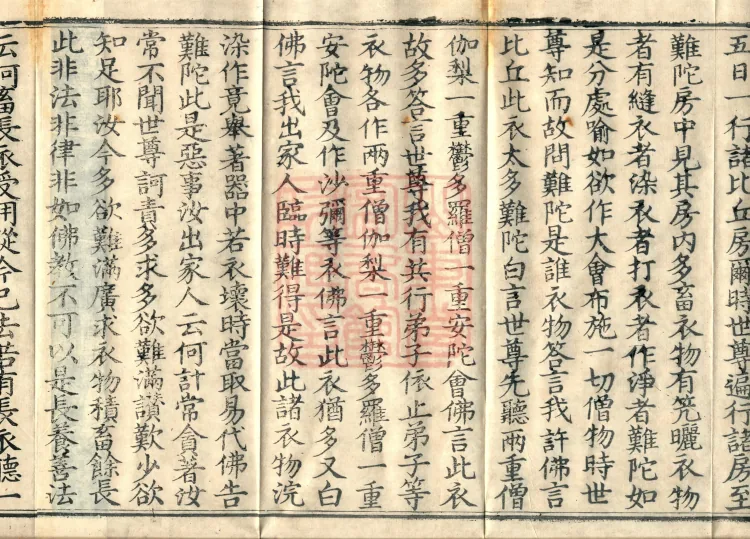 五日一行諸比丘房爾時世尊遍行諸房至
難陀房中見其房内多畜衣物有笐曬衣物
者有縫衣者染衣者打衣者作淨者難陀如
是分處喻如欲作大會布施一切僧物時世
尊知而故問難陀是誰衣物答言我許佛言
比丘此衣太多難陀白言世尊先聽兩重僧
伽梨一重鬱多羅僧一重安陀會佛言此衣
故多答言世尊我有共行弟子依止弟子等
衣物各作兩重僧伽梨一重鬱多羅僧一重
安陀會及作沙彌等衣佛言此衣猶多又白
佛言我出家人臨時難得是故此諸衣物浣
染作竟舉著器中若衣壞時當取易代佛告
難陀此是惡事汝出家人云何計常貪著汝
常不聞世尊訶責多求多欲難滿讃歎少欲
知足耶汝今多欲難滿廣求衣物積畜餘長
此非法非律非如佛教不可以是長養善法
云何畜長衣受用從今已去若有長衣聽一